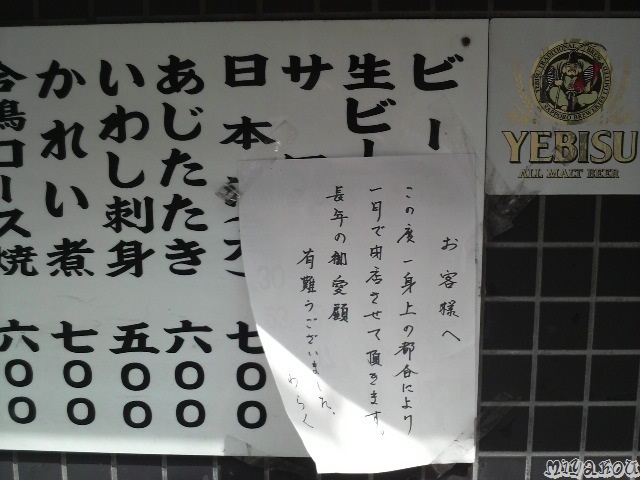 ビー
生ビー
サ
日本酒 七〇〇
あじたたき 六〇〇
いわし刺身 五〇〇
かれい煮 七〇〇
合鴨ロース焼 六〇〇
お客様へ
この度一身上の都合により
一月で閉店させて頂きます。
長年の御愛顧
有難うございました。
わらく
YEBISU
ALL MALT BEER